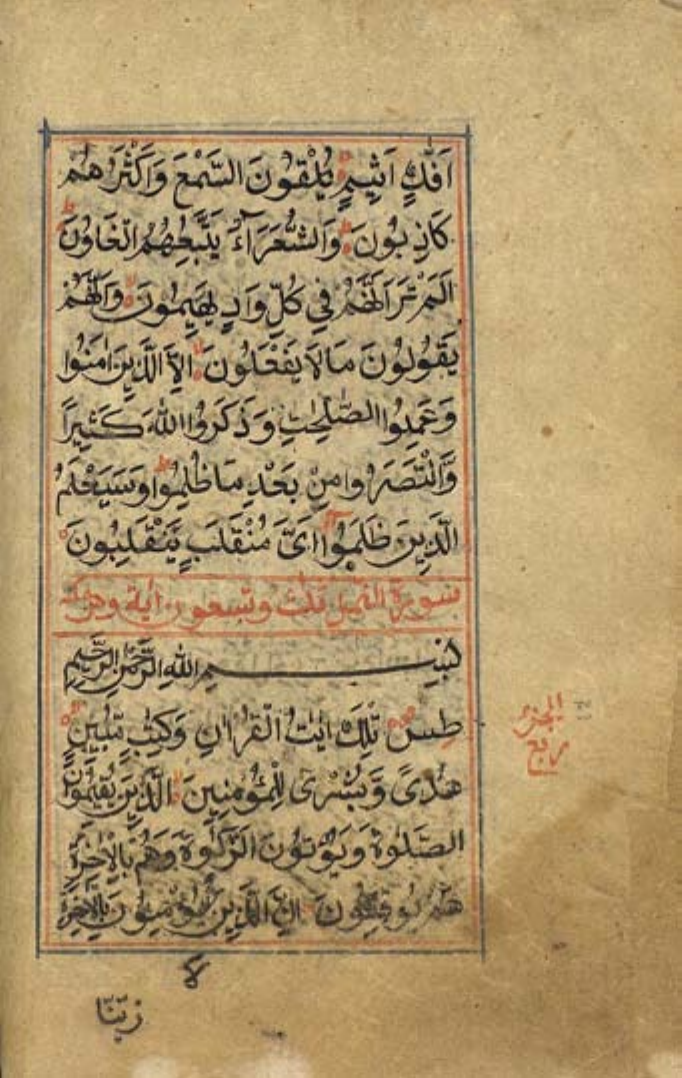 اَفَّاكٍ اَثِيْمٍ يُلْقُونَ السَّمْعَ وَاَكْثَرُهُمْ
كَاذِبُونَ وَالشُّعَرَآءُ يَتَّبِعُهُمُ الْغَاوُنَ
اَلَمْ تَرَ اَنَّهُمْ فِي كُلِّ وَادٍ يَهِيمُونَ وَاَنَّهُمْ
يَقُولُونَ مَالَا يَفْعَلُونَ اِلَّا الَّذِينَ اٰمَنُوا
وَعَمِلُوا الصّٰلِحٰتِ وَذَكَرُوا اللّٰهَ كَثِيرًا
وَّانْتَصَرُوا مِنْ بَعْدِ مَا ظُلِمُوا وَسَيَعْلَمُ
الَّذِينَ ظَلَمُوا اَيَّ مُنْقَلَبٍ يَنْقَلِبُونَ
سورة النمل ثلث وتسعون اية وهي
بِسْمِ اللهِ الرَّحْمٰنِ الرَّحِيْمِ
طس تِلْكَ اٰيٰتُ الْقُرْاٰنِ وَكِتٰبٍ مُّبِيْنٍ
هُدًى وَّبُشْرٰى لِلْمُؤْمِنِينَ الَّذِينَ يُقِيمُونَ
الصَّلٰوةَ وَيُؤْتُونَ الزَّكٰوةَ وَهُمْ بِالْاٰخِرَةِ
هُمْ يُوقِنُونَ اِنَّ الَّذِينَ لَا يُؤْمِنُونَ بِالْاٰخِرَةِ
الجزء
ربع
زيّنّا